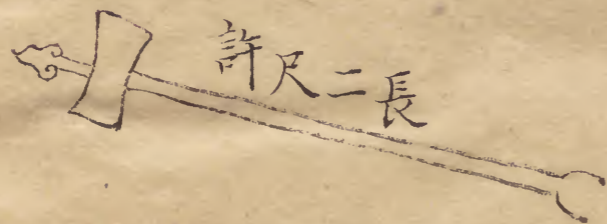 長二尺許